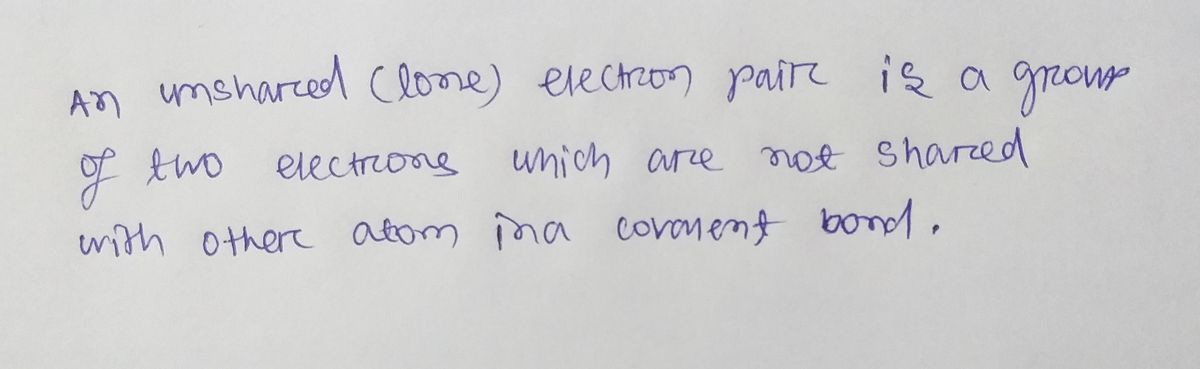 An unshared (lone) electron pair is a group
of two electrons which are not shared
with other atom in a covalent bond.